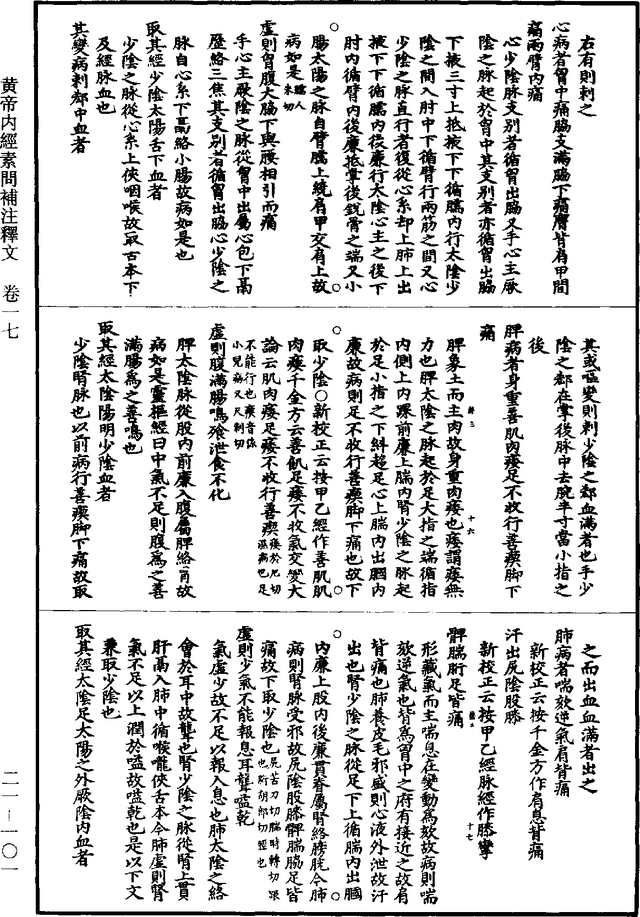 右右則刺之
心病者胷中痛脇支滿脇下痛膺背肩甲間
痛兩臂内痛
心少陰脉支别者循胷出脇又手心主厥
陰之脉起於胷中其支别者亦循胷出脇
下掖三寸上抵掖下下循臑内行太陰少
陰之間入肘中下循臂行兩筋之間又心
少陰之脉直行者復從心系却上肺上出
掖下下循臑内後廉行太陰心主之後下
肘内循臂内後廉抵掌後鋭骨之端又小
腸太陽之脉自臂臑上繞肩甲交肩上故
病如是
虚則胷腹大脇下與腰相引而痛
手心主厥陰之脉從胷中出屬心包下鬲
歷絡三焦其支别者循胷出脇心少陰之
脉自心系下鬲絡小腸故病如是也
取其經少陰太陽舌下血者
少陰之脉從心系上俠咽喉故取舌本下
及經脉血也
其變病刺郄中血者
其或嘔變則刺少陰之郄血滿者也手少
陰之郄在掌後脉中去腕半寸當小指之
後
脾病者身重善肌肉痿足不收行善瘈脚下
痛
脾象土而主肉故身重肉痿也痿謂痿無
力也脾太陰之脉起於足大指之端循指
内側上内踝前廉上腨内腎少陰之脉起
於足小指之下斜趨足心上腨内出膕内
廉故病則足不收行善瘈脚下痛也故下
取少陰○新校正云按甲乙經作善肌肌
肉痿千金方云善飢足痿不收氣交變大
論云肌肉痿足痿不收行善瘈
虚則腹滿腸鳴飱泄食不化
脾太陰脉從股内前廉入腹屬脾絡胃故
病如是靈樞經曰中氣不足則腹爲之善
滿腸爲之善鳴也
取其經太陰陽明少陰血者
少陰腎脉也以前病行善瘈脚下痛故取
之而出血血滿者出之
肺病者喘欬逆氣肩背痛
新校正云按千金方作肩息背痛
汗出尻陰股膝
新校正云按甲乙經脉經作膝攣
髀腨胻足皆痛
肺藏氣而主喘息在變動爲欬故病則喘
欬逆氣也背爲胷中之府肩接近之故肩
背痛也肺養皮毛邪盛則心液外泄故汗
出也腎少陰之脉從足下上循腨内出膕
内廉上股内後廉貫脊屬腎絡膀胱今肺
病則腎脉受邪故尻陰股膝髀腨胻足皆
痛故下取少陰也
虚則少氣不能報息耳聾嗌乾
氣虚少故不足以報入息也肺太陰之絡
會於耳中故聾也腎少陰之脉從腎上貫
肝鬲入肺中循喉嚨俠舌本今肺虚則腎
氣不足以上潤於嗌故嗌乾也是以下文
兼取少陰也
取其經太陰足太陽之外厥陰内血者
黄帝内經素問補注釋文 卷一七
二一—一〇一